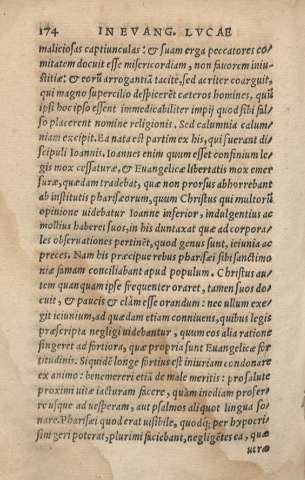 174 IN EVANG. LVCAE
maliciosas captiunculas: & suam erga peccatores co-
mitatem docuit esse misericordiam, non fauorem iniu-
stitiæ: & eorũ arrogantiã tacitè, sed acriter coarguit,
qui magno supercilio despicerẽt cæteros homines, quũ
ipsi hoc ipso essent immedicabiliter impij quod sibi fal-
so placerent nomine religionis. Sed calumnia calum-
niam excipit. Ea nata est partim ex his, qui fuerant di-
scipuli Ioannis. Ioannes enim quum esset confinium le-
gis mox cessaturæ, & Euangelicæ libertatis mox emer
suræ, quædam tradebat, quæ non prorsus abhorrebant
ab institutis pharisæorum, quum Christus qui multorũ
opinione uidebatur Ioanne inferior, indulgentius ac
mollius haberet suos, in his duntaxat quæ ad corpora-
les obseruationes pertinẽt, quod genus sunt, ieiunia ac
preces. Nam his præcipue rebus pharisæi sibi sanctimo
niæ famam conciliabant apud populum. Christus au-
tem quanquam ipse frequenter oraret, tamen suos do-
cuit, & paucis & clàm esse orandum: nec ullum exe-
git ieiunium, ad quædam etiam conniuens, quibus legis
præscripta negligi uidebantur, quum eos alia ratione
fingeret ad fortiora, quæ propria sunt Euangelicæ for
titudinis. Siquidẽ longe fortius est iniuriam condonare
ex animo: benemereri etiã de male meritis: pro salute
proximi uitæ iacturam facere, quàm inediam profer-
re usque ad uesperam, aut psalmos aliquot lingua so-
nare. Pharisæi quod erat uisibile, quodq; per hypocri
sim geri poterat, plurimi faciebant, negligẽtes ea, quæ
ueræ